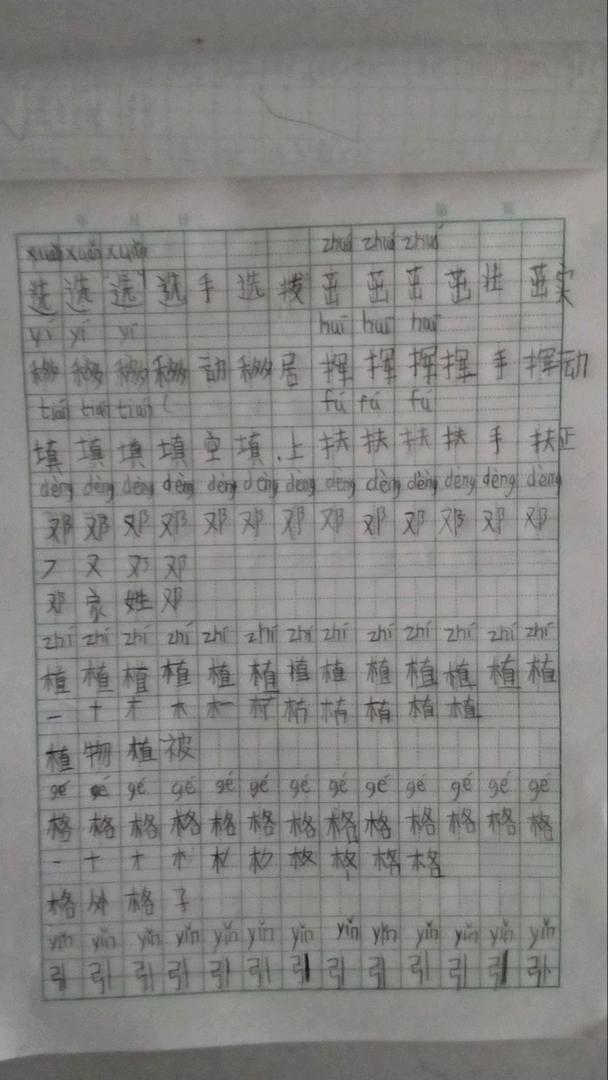 年 月 日 第 页
xuǎn xuǎn xuǎn zhuó zhuó zhuó
选 选 选 选 手 选 拔 茁 茁 茁 茁 壮 茁实
yí yí yí huī huī huī
移 移 移 移 动 移 居 挥 挥 挥 挥 手 挥动
tián tián tián fú fú fú
填 填 填 填 空 填 上 扶 扶 扶 扶 手 扶正
dèng dèng dèng dèng dèng dèng dèng dèng dèng dèng dèng dèng dèng
邓 邓 邓 邓 邓 邓 邓 邓 邓 邓 邓 邓 邓
フ 又 邓
邓 家 姓 邓
zhí zhí zhí zhí zhí zhí zhí zhí zhí zhí zhí zhí zhí
植 植 植 植 植 植 植 植 植 植 植 植 植
一 十 才 木 植
植 物 植 被
gé gé gé gé gé gé gé gé gé gé gé gé gé
格 格 格 格 格 格 格 格 格 格 格 格 格
一 十 才 木 格
格 外 格 子
yǐn yǐn yǐn yǐn yǐn yǐn yǐn yǐn yǐn yǐn yǐn yǐn yǐn
引 引 引 引 引 引 引 引 引 引 引 引 引